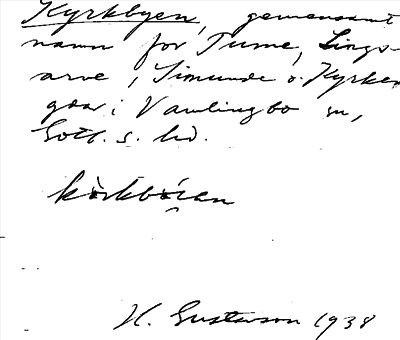 Kyrkbyen, gemensamt
namn för Tume, Lings-
arve, Simunde o. Kyrke-
går i Vamlingbo sn,
Gotl. s. hd.
körkböien
H. Gustavson 1938